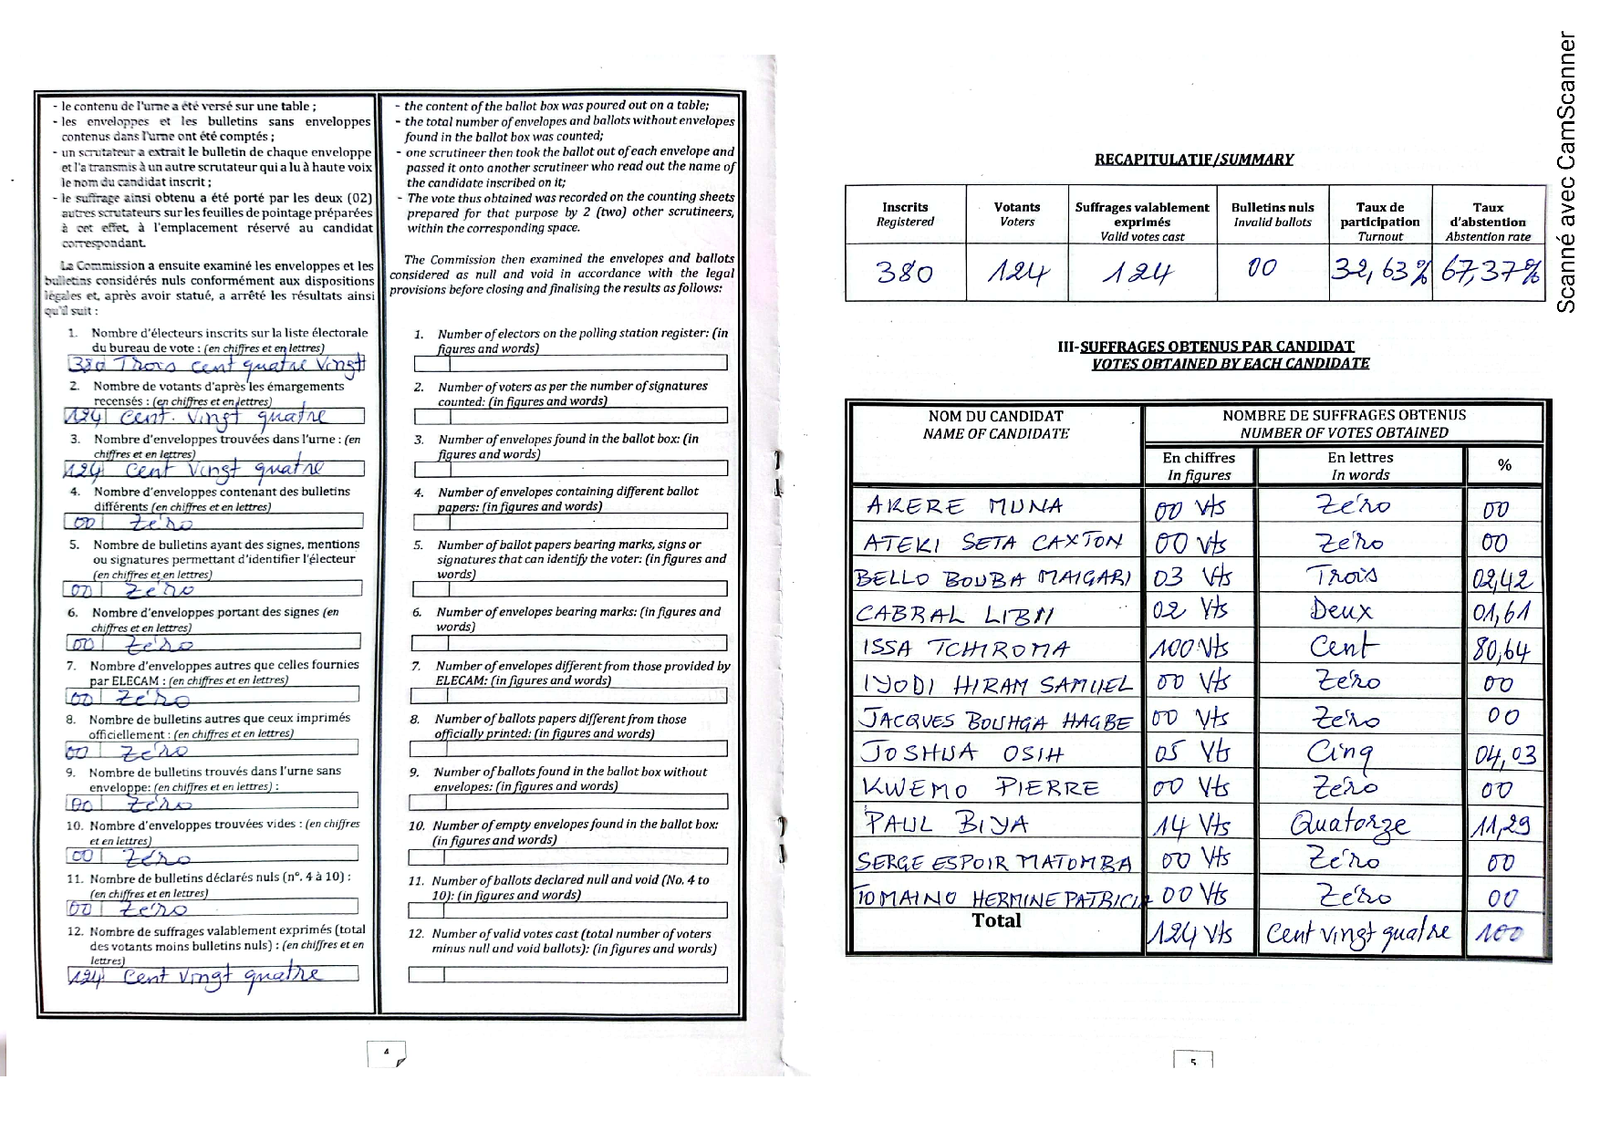 - le contenu de l'urne a été versé sur une table ;
- les enveloppes et les bulletins sans enveloppes
contenus dans l'urne ont été comptés ;
- un scrutateur a extrait le bulletin de chaque enveloppe
et l'a transmis à un autre scrutateur qui a lu à haute voix
le nom du candidat inscrit ;
- le suffrage ainsi obtenu a été porté par les deux (02)
autres scrutateurs sur les feuilles de pointage préparées
à cet effet, à l'emplacement réservé au candidat
correspondant.
La Commission a ensuite examiné les enveloppes et les
bulletins considérés nuls conformément aux dispositions
légales et, après avoir statué, a arrêté les résultats ainsi
qu'il suit :
1. Nombre d'électeurs inscrits sur la liste électorale
du bureau de vote : (en chiffres et en lettres)
380 Trois cent quatre Vingt
2. Nombre de votants d'après les émargements
recensés : (en chiffres en lettres)
124 Cent Vingt quatre
3. Nombre d'enveloppes trouvées dans l'urne : (en
chiffres et en lettres)
124 Cent Vingt quatre
4. Nombre d'enveloppes contenant des bulletins
différents (en chiffres et en lettres)
00 Zéro
5. Nombre de bulletins ayant des signes, mentions
ou signatures permettant d'identifier l'électeur
(en chiffres et en lettres)
00 Zéro
6. Nombre d'enveloppes portant des signes (en
chiffres et en lettres)
00 Zéro
7. Nombre d'enveloppes autres que celles fournies
par ELECAM : (en chiffres et en lettres)
00 Zéro
8. Nombre de bulletins autres que ceux imprimés
officiellement : (en chiffres et en lettres)
00 Zéro
9. Nombre de bulletins trouvés dans l'urne sans
enveloppe: (en chiffres et en lettres) :
00 Zéro
10. Nombre d'enveloppes trouvées vides : (en chiffres
et en lettres)
00 Zéro
11. Nombre de bulletins déclarés nuls (n°. 4 à 10) :
(en chiffres et en lettres)
00 Zéro
12. Nombre de suffrages valablement exprimés (total
des votants moins bulletins nuls) : (en chiffres et en
lettres)
124 Cent Vingt quatre
- the content of the ballot box was poured out on a table;
- the total number of envelopes and ballots without envelopes
found in the ballot box was counted;
- one scrutineer then took the ballot out of each envelope and
passed it onto another scrutineer who read out the name of
the candidate inscribed on it;
- The vote thus obtained was recorded on the counting sheets
prepared for that purpose by 2 (two) other scrutineers,
within the corresponding space.
The Commission then examined the envelopes and ballots
considered as null and void in accordance with the legal
provisions before closing and finalising the results as follows:
1. Number of electors on the polling station register: (in
figures and words)
2. Number of voters as per the number of signatures
counted: (in figures and words)
3. Number of envelopes found in the ballot box: (in
figures and words)
4. Number of envelopes containing different ballot
papers: (in figures and words)
5. Number of ballot papers bearing marks, signs or
signatures that can identify the voter: (in figures and
words)
6. Number of envelopes bearing marks: (in figures and
words)
7. Number of envelopes different from those provided by
ELECAM: (in figures and words)
8. Number of ballots papers different from those
officially printed: (in figures and words)
9. Number of ballots found in the ballot box without
envelopes: (in figures and words)
10. Number of empty envelopes found in the ballot box:
(in figures and words)
11. Number of ballots declared null and void (No. 4 to
10): (in figures and words)
12. Number of valid votes cast (total number of voters
minus null and void ballots): (in figures and words)
4
RECAPITULATIF/SUMMARY
Inscrits Votants Suffrages valablement Bulletins nuls Taux de Taux
Registered Voters exprimés Invalid ballots participation d'abstention
Valid votes cast Turnout Abstention rate
380 124 124 00 32,63% 67,37%
III-SUFFRAGES OBTENUS PAR CANDIDAT
VOTES OBTAINED BY EACH CANDIDATE
NOM DU CANDIDAT NOMBRE DE SUFFRAGES OBTENUS
NAME OF CANDIDATE NUMBER OF VOTES OBTAINED
En chiffres En lettres %
In figures In words
AKERE MUNA 00 Vts Zéro 00
ATEKI SETA CAXTON 00 Vts Zéro 00
BELLO BOUBA MAIGARI 03 Vts Trois 02,42
CABRAL LIBII 02 Vts Deux 01,61
ISSA TCHIROMA 100 Vts Cent 80,64
IYODI HIRAM SAMUEL 00 Vts Zéro 00
JACQUES BOUHGA HAGBE 00 Vts Zéro 00
JOSHUA OSIH 05 Vts Cinq 04,03
KWEMO PIERRE 00 Vts Zéro 00
PAUL BIYA 14 Vts Quatorze 11,29
SERGE ESPOIR MATOMBA 00 Vts Zéro 00
TOMAINO HERMINE PATRICIA 00 Vts Zéro 00
Total 124 Vts Cent vingt quatre 100
5
Scanné avec CamScanner